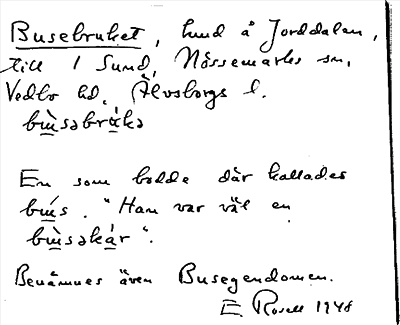 Busebruket, lund å Jorddalen,
till 1 Sund, Nössemarks sn,
Vedbo hd, Älvsborgs l.
bù̲səbrà̲kə
En som bodde där kallades
bú̲s. "Han var väl en
bù̲səkár".
Benämnes även Busegendomen.
E. Rosell 1948